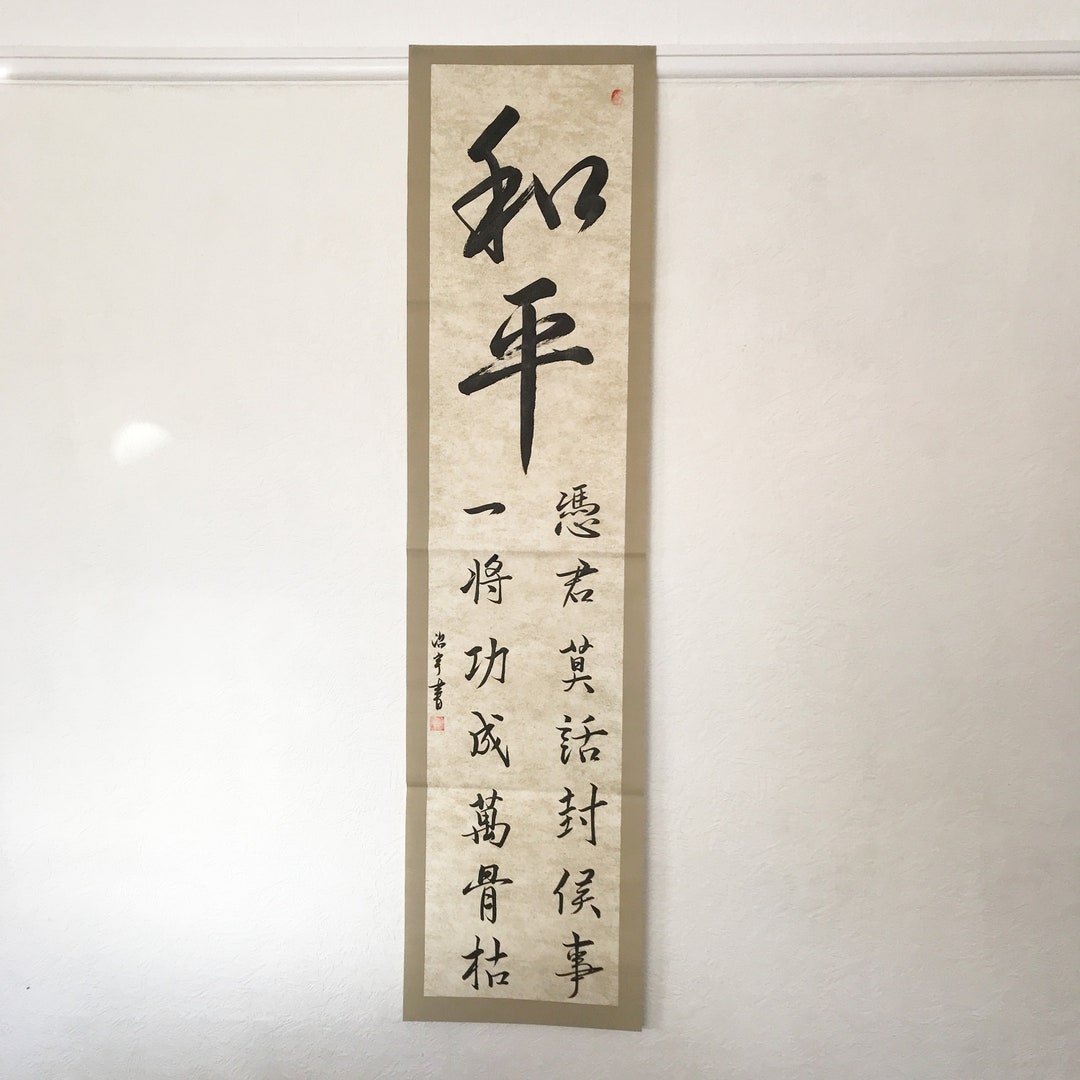 和平
憑君莫話封侯事
一将功成萬骨枯
治宇書